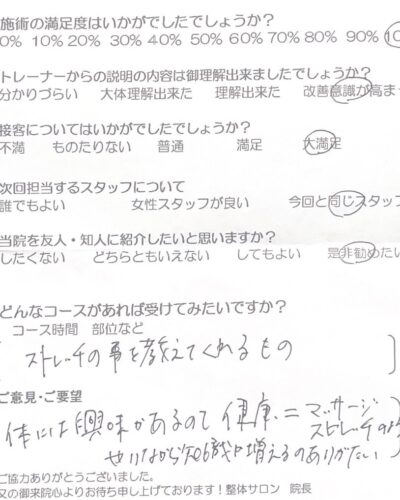 施術の満足度はいかがでしたでしょうか?
0% 10% 20% 30% 40% 50% 60% 70% 80% 90% 10
トレーナーからの説明の内容は御理解出来ましたでしょうか?
分かりづらい 大体理解出来た 理解出来た 改善意識が高ま
接客についてはいかがでしたでしょうか?
不満 ものたりない 普通 満足 大満足
次回担当するスタッフについて
誰でもよい 女性スタッフが良い 今回と同じスタッフ
当院を友人・知人に紹介したいと思いますか?
したくない どちらともいえない してもよい 是非勧めたい
どんなコースがあれば受けてみたいですか?
コース時間 部位など
ストレッチの事を教えてくれるもの
ご意見・ご要望
体には興味があるので 健康=マッサージ
ストレッチの
知識が増えるのありがたい
ご協力ありがとうございました。
又の御来院心よりお待ち申し上げております!整体サロン 院長